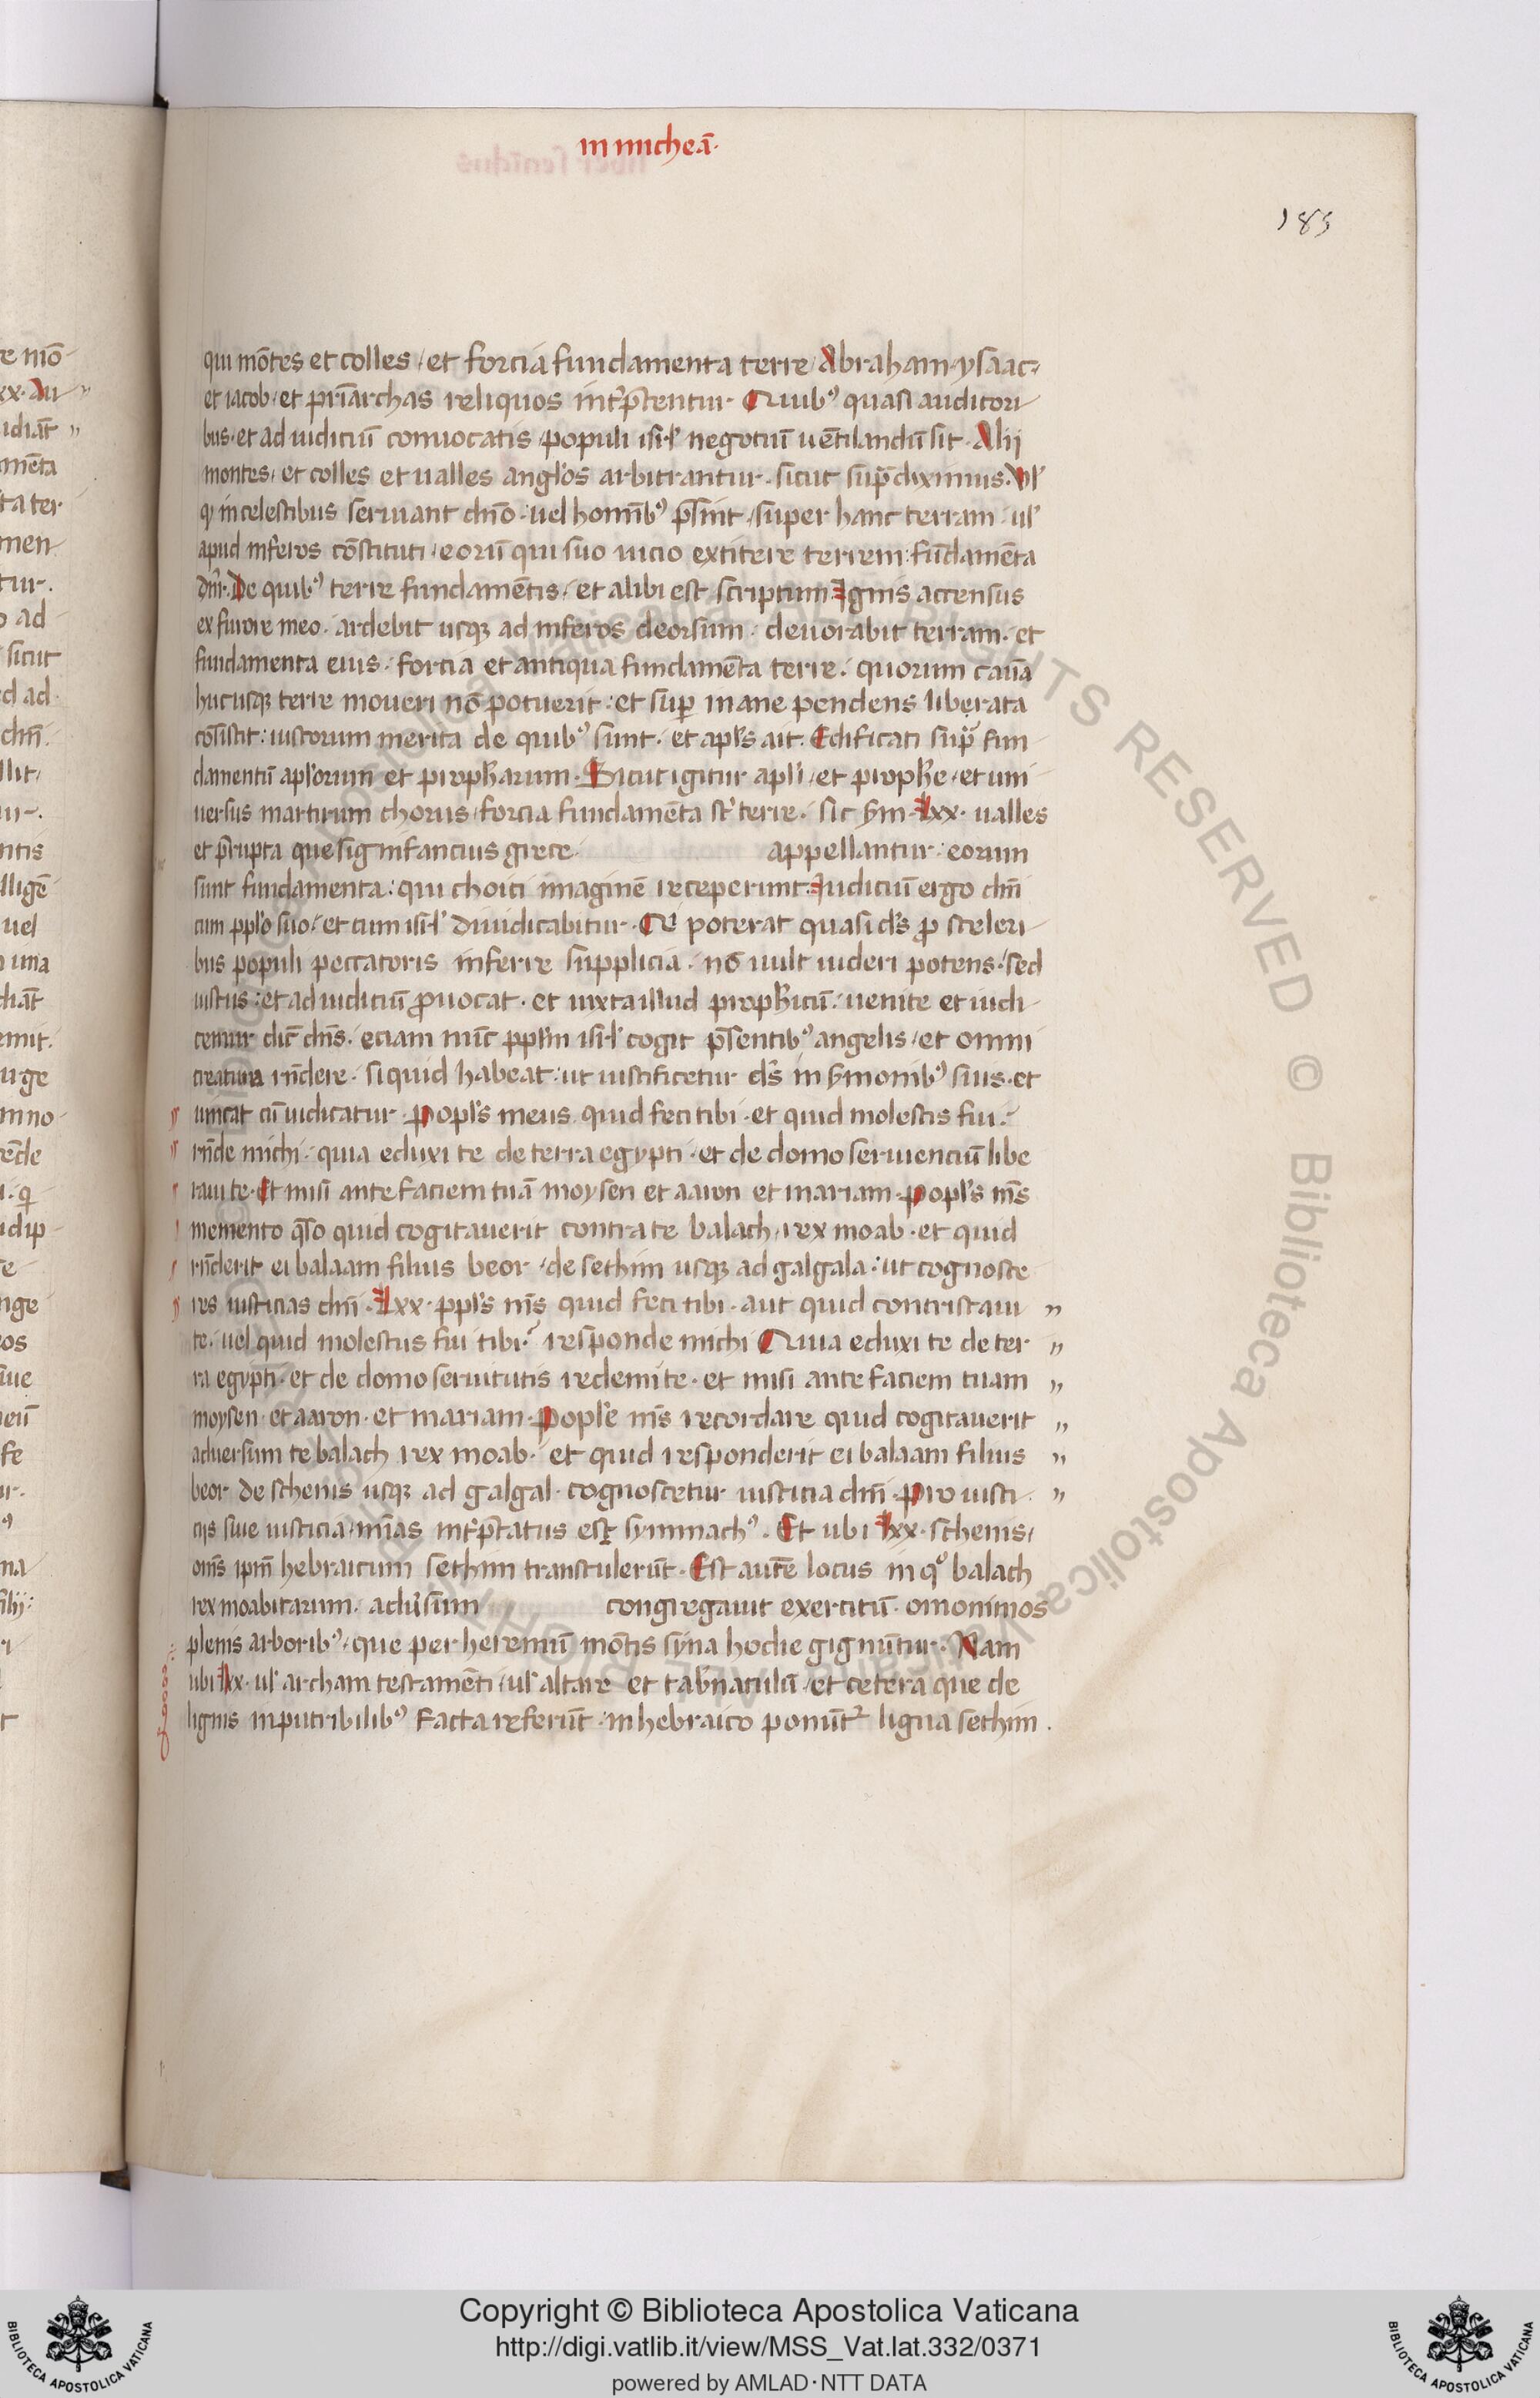 in micheā·
185
qui mōtes et colles / et forcia fundamenta terre / Abraham ysaac
et iacob · et pr̄iarchas reliquos int̄p̄tentur · Quib⁹ quasi auditori
bus · et ad iudiciū conuocatis / populi isr̄l negotiū uētilandū sit · Alij
montes / et colles et ualles angl̄os arbitrantur · sicut sup̄ diximus · Vl̄
q in celestibus seruant dn̄o · uel homīb⁹ p̄sint / super hanc terram · ul̄
apud inferos cōstituti / eorū qui suo uicio extitere terreni : fūdamēta
dn̄r · De quib⁹ terre fundamētis / et alibi est scriptum Ignis accensus
ex furore meo · ardebit usqꝫ ad inferos deorsum · deuorabit terram · et
fundamenta eius · forcia et antiqua fundamēta terre · quorum cauā
hucusqꝫ terre moueri nō potuerit : et suꝑ inane pendens liberata
cōsistit : iustorum merita de quib⁹ sunt · et apl̄s ait · Edificati sup̄ fun
damentū apl̄orum et proph̄arum · Sicut igitur apl̄i / et proph̄e / et uni
uersus martirum chorus / forcia fundamēta st̄ terre · sic s̄m · Lxx · ualles
et p̄rupta que significancius grece appellantur · eorum
sunt fundamenta : qui choici imaginē receperunt · Iudiciū ergo dn̄i
cum ppl̄o suo / et cum isr̄l diiudicabitur · Cū poterat quasi ds̄ ꝓ sceleri
bus populi peccatoris inferre supplicia · nō uult uideri potens / sed
iustus : et ad iudiciū ꝓuocat · et iuxta illud proph̄icū · uenite et iudi
cemur dic̄ dn̄s · eciam nūc ppl̄m isr̄l cogit p̄sentib⁹ angelis / et omni
creatura rn̄dere · si quid habeat : ut iustificetur ds̄ in s̄monib⁹ suis · et
uincat cū iudicatur · Popl̄s meus quid feci tibi · et quid molestis fui ·
rn̄de michi · quia eduxi te de terra egypti · et de domo seruienciū libe
raui te · Et misi ante faciem tuā moysen et aaron et mariam · Popl̄s ms̄
memento q̄so quid cogitauerit contra te balach / rex moab · et quid
rn̄derit ei balaam filius beor / de sethim usqꝫ ad galgala : ut cognosce
res iusticias dn̄i · Lxx · ppl̄s ms̄ quid feci tibi · aut quid contristaui „
te · uel quid molestus fui tibi ? responde michi Quia eduxi te de ter „
ra egypti · et de domo seruitutis redemi te · et misi ante faciem tuam „
moysen · et aaron · et mariam · Popl̄e ms̄ recordare quid cogitauerit „
aduersum te balach rex moab · et quid responderit ei balaam filius „
beor de schenis usqꝫ ad galgal · cognoscetur iusticia dn̄i · Pro iusti „
cijs siue iusticia / mīas int̄p̄tatus est symmach⁹ · Et ubi Lxx · schenis /
oms̄ ipm̄ hebraicum sethim transtulerūt · Est autē locus in qͦ balach
rex moabitarum · adu̾sum congregauit exercitū · omonimos
plenis arborib⁹ / que per heremū mōtis syna hodie gignūtur · Nam
ubi Lxx · ul̄ archam testamēti / ul̄ altare et tab̄naculū / et cetera que de
lignis inputribilib⁹ facta referūt · in hebraico ponūt᷑ ligna sethim ·
Copyright © Biblioteca Apostolica Vaticana
http://digi.vatlib.it/view/MSS_Vat.lat.332/0371
powered by AMLAD·NTT DATA